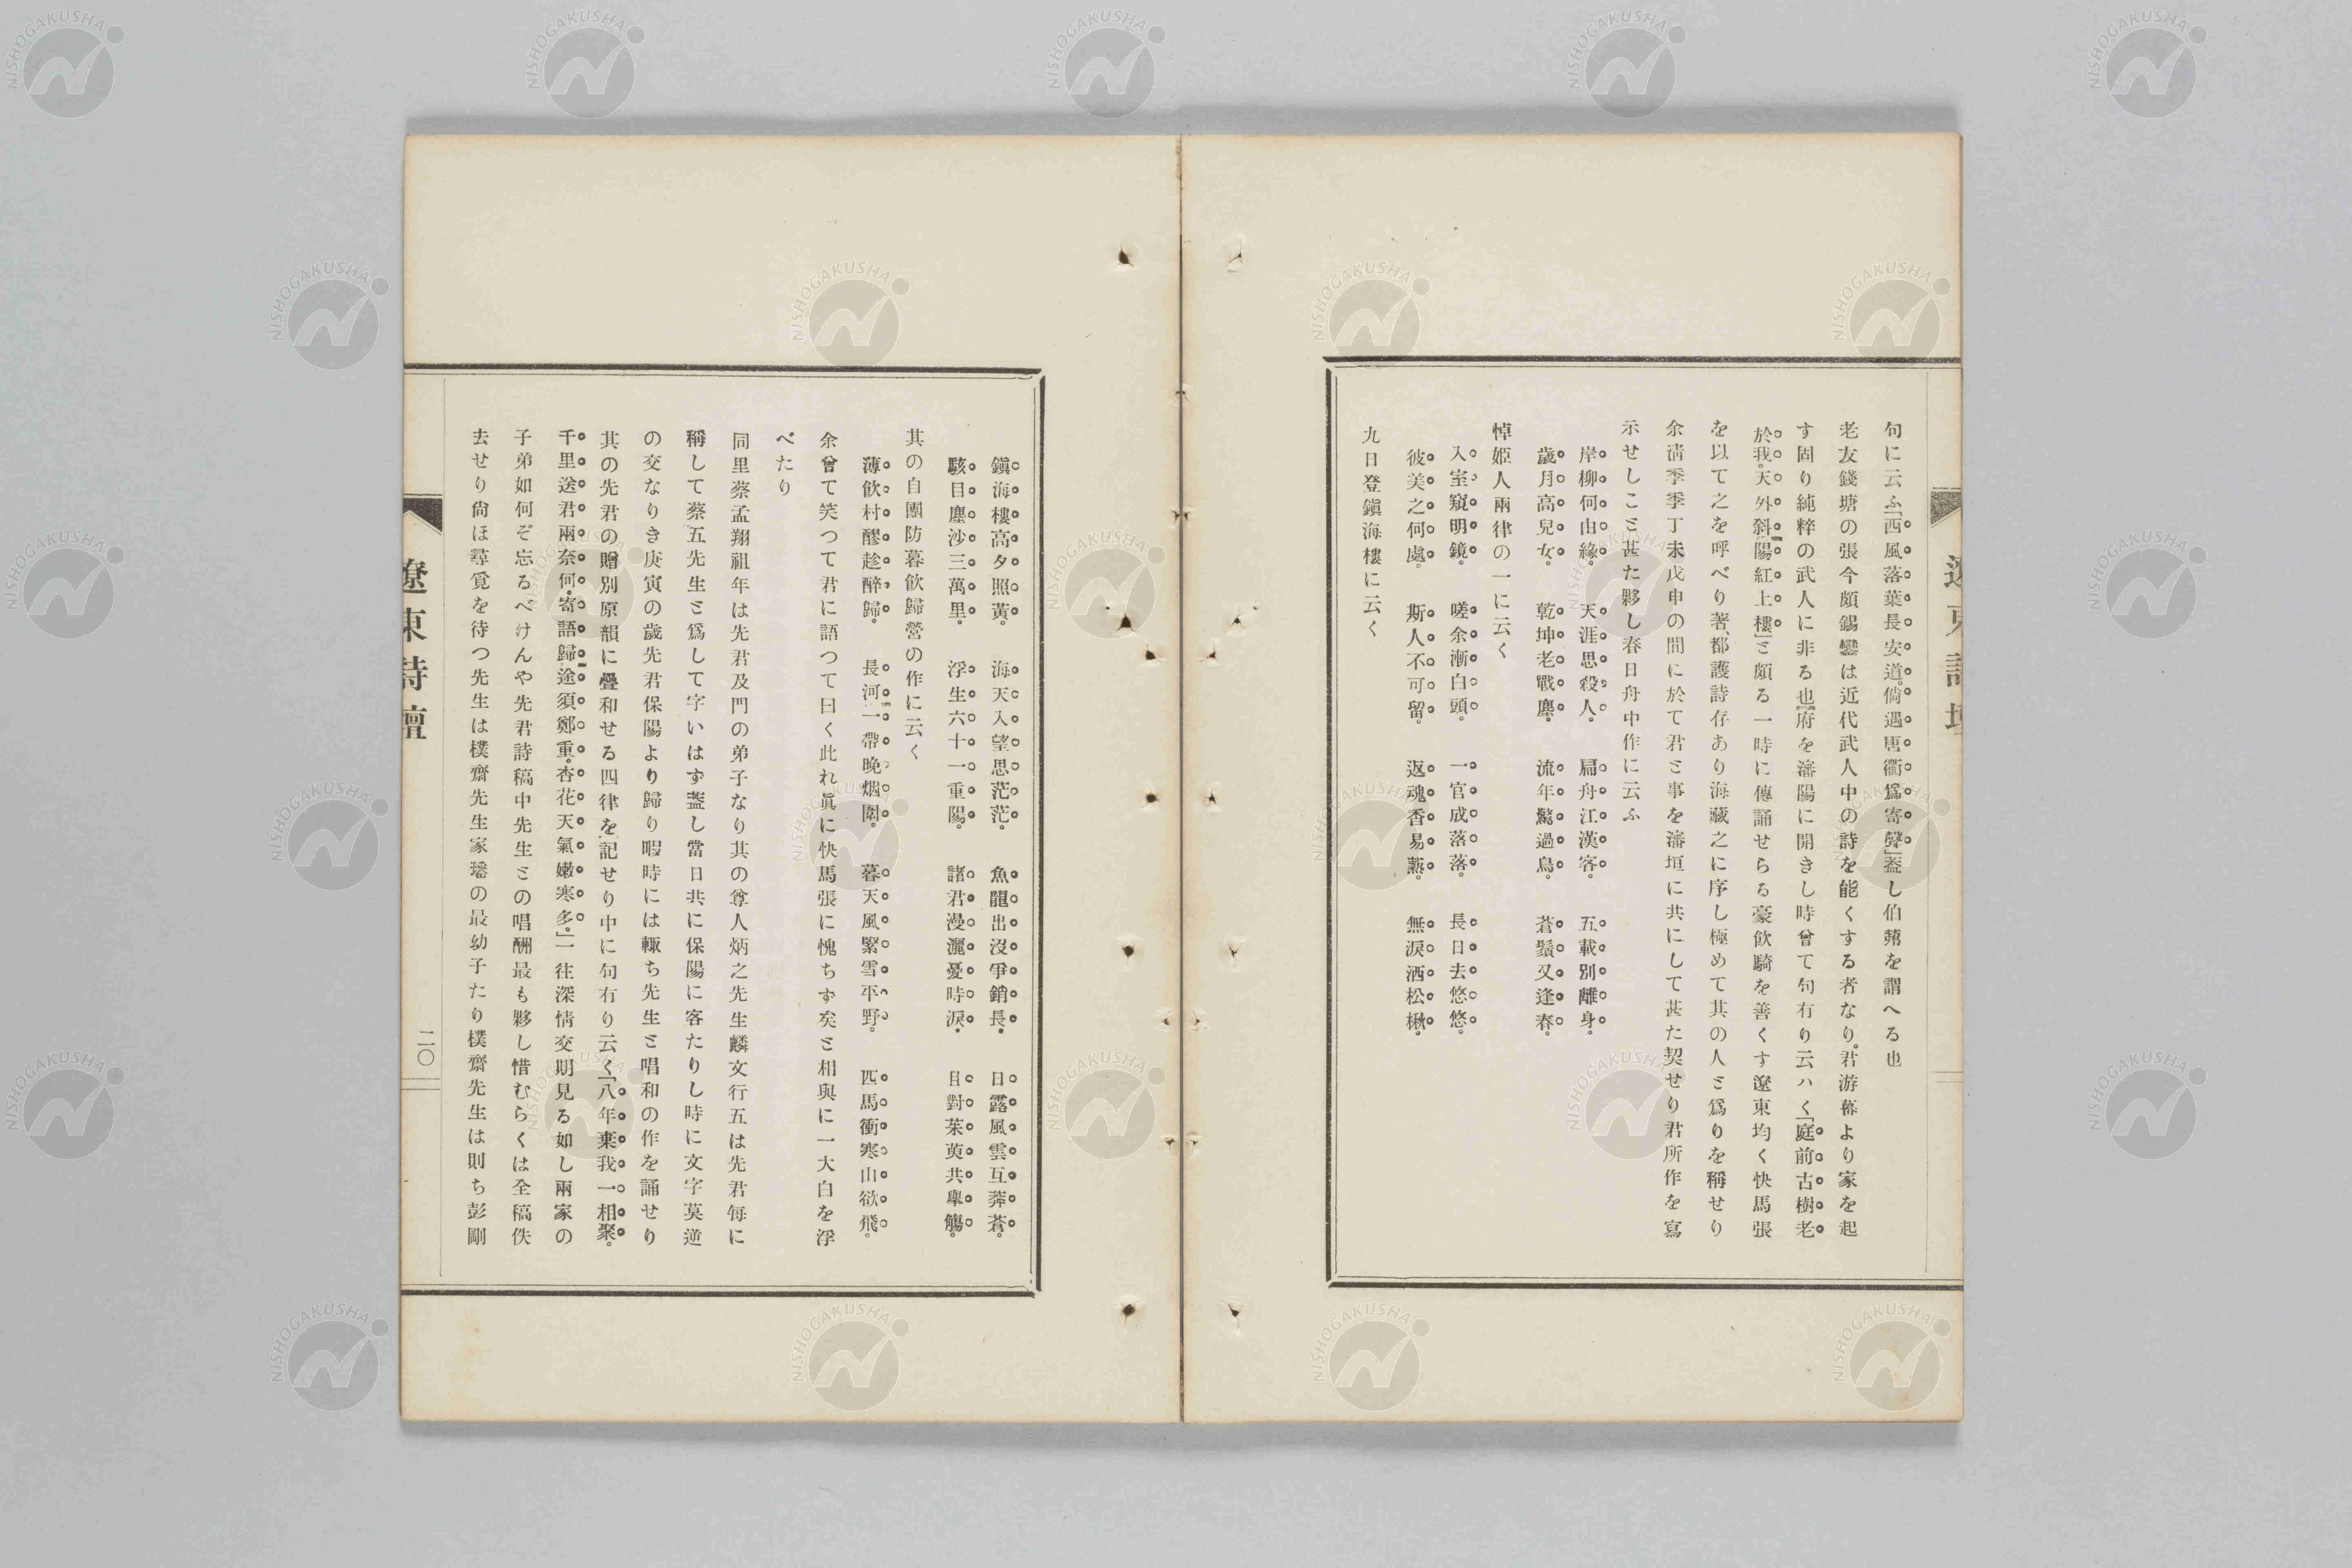 句に云ふ「西風落葉長安道。倘遇唐衢爲寄聲」葢し伯葂を謂へる也
老友錢塘の張今頗錫鑾は近代武人中の詩を能くする者なり。君游幕より家を起
す固り純粹の武人に非る也府を瀋陽に開きし時曾て句有り云ハく「庭前古樹老
於我。天外斜陽紅上樓」ミ頗る一時に傳誦せらる豪飲騎を善くす遼東均く快馬張
を以て之を呼べり著、都護詩存あり海藏之に序し極めて其の人ミ爲りを稱せり
余淸季季丁未戊申の間に於て君ミ事を瀋垣に共にして甚た契せり君所作を寫
示せしこミ甚た夥し春日舟中作に云ふ
岸柳何由緣。 天涯思殺人。 扁舟江漢客。 五載別離身。
歲月高兒女。 乾坤老戰塵。 流年驚過鳥。 蒼鬚又逢春。
悼姬人兩律の一に云く
入室窺明鏡。 嗟余漸白頭。 一官成落落。 長日去悠悠。
彼美之何處。 斯人不可留。 返魂香易爇。 無淚洒松楸。
九日登鎭海樓に云く
遼東詩壇
鎭海樓高夕照黃。 海天入望思茫茫。 魚龍出沒爭銷長。 日露風雲互莽蒼。
駭目塵沙三萬里。 浮生六十一重陽。 諸君漫灑憂時淚。 且對茱萸共擧觴。
其の自團防暮飲歸營の作に云く
薄飲村醪趁醉歸。 長河一帶晚烟圍。 暮天風緊雪平野。 匹馬衝寒山欲飛。
余曾て笑つて君に語つて曰く此れ眞に快馬張に愧ちず矣ミ相與に一大白を浮
べたり
同里蔡孟翔祖年は先君及門の弟子なり其の尊人炳之先生麟文行五は先君每に
稱して蔡五先生ミ爲して字いはず葢し當日共に保陽に客たりし時に文字莫逆
の交なりき庚寅の歲先君保陽より歸り暇時には輙ち先生ミ唱和の作を誦せり
其の先君の贈別原韻に疊和せる四律を記せり中に句有り云く「八年棄我一相聚。
千里送君兩奈何。寄語歸途須鄭重。杏花天氣嫩寒多。」一往深情交期見る如し兩家の
子弟如何ぞ忘るべけんや先君詩稿中先生ミの唱酬最も夥し惜むらくは全稿佚
去せり尙ほ尋覓を待つ先生は樸齋先生家璠の最幼子たり樸齋先生は則ち彭剛
遼東詩壇
二〇
NISHOGAKUSHA